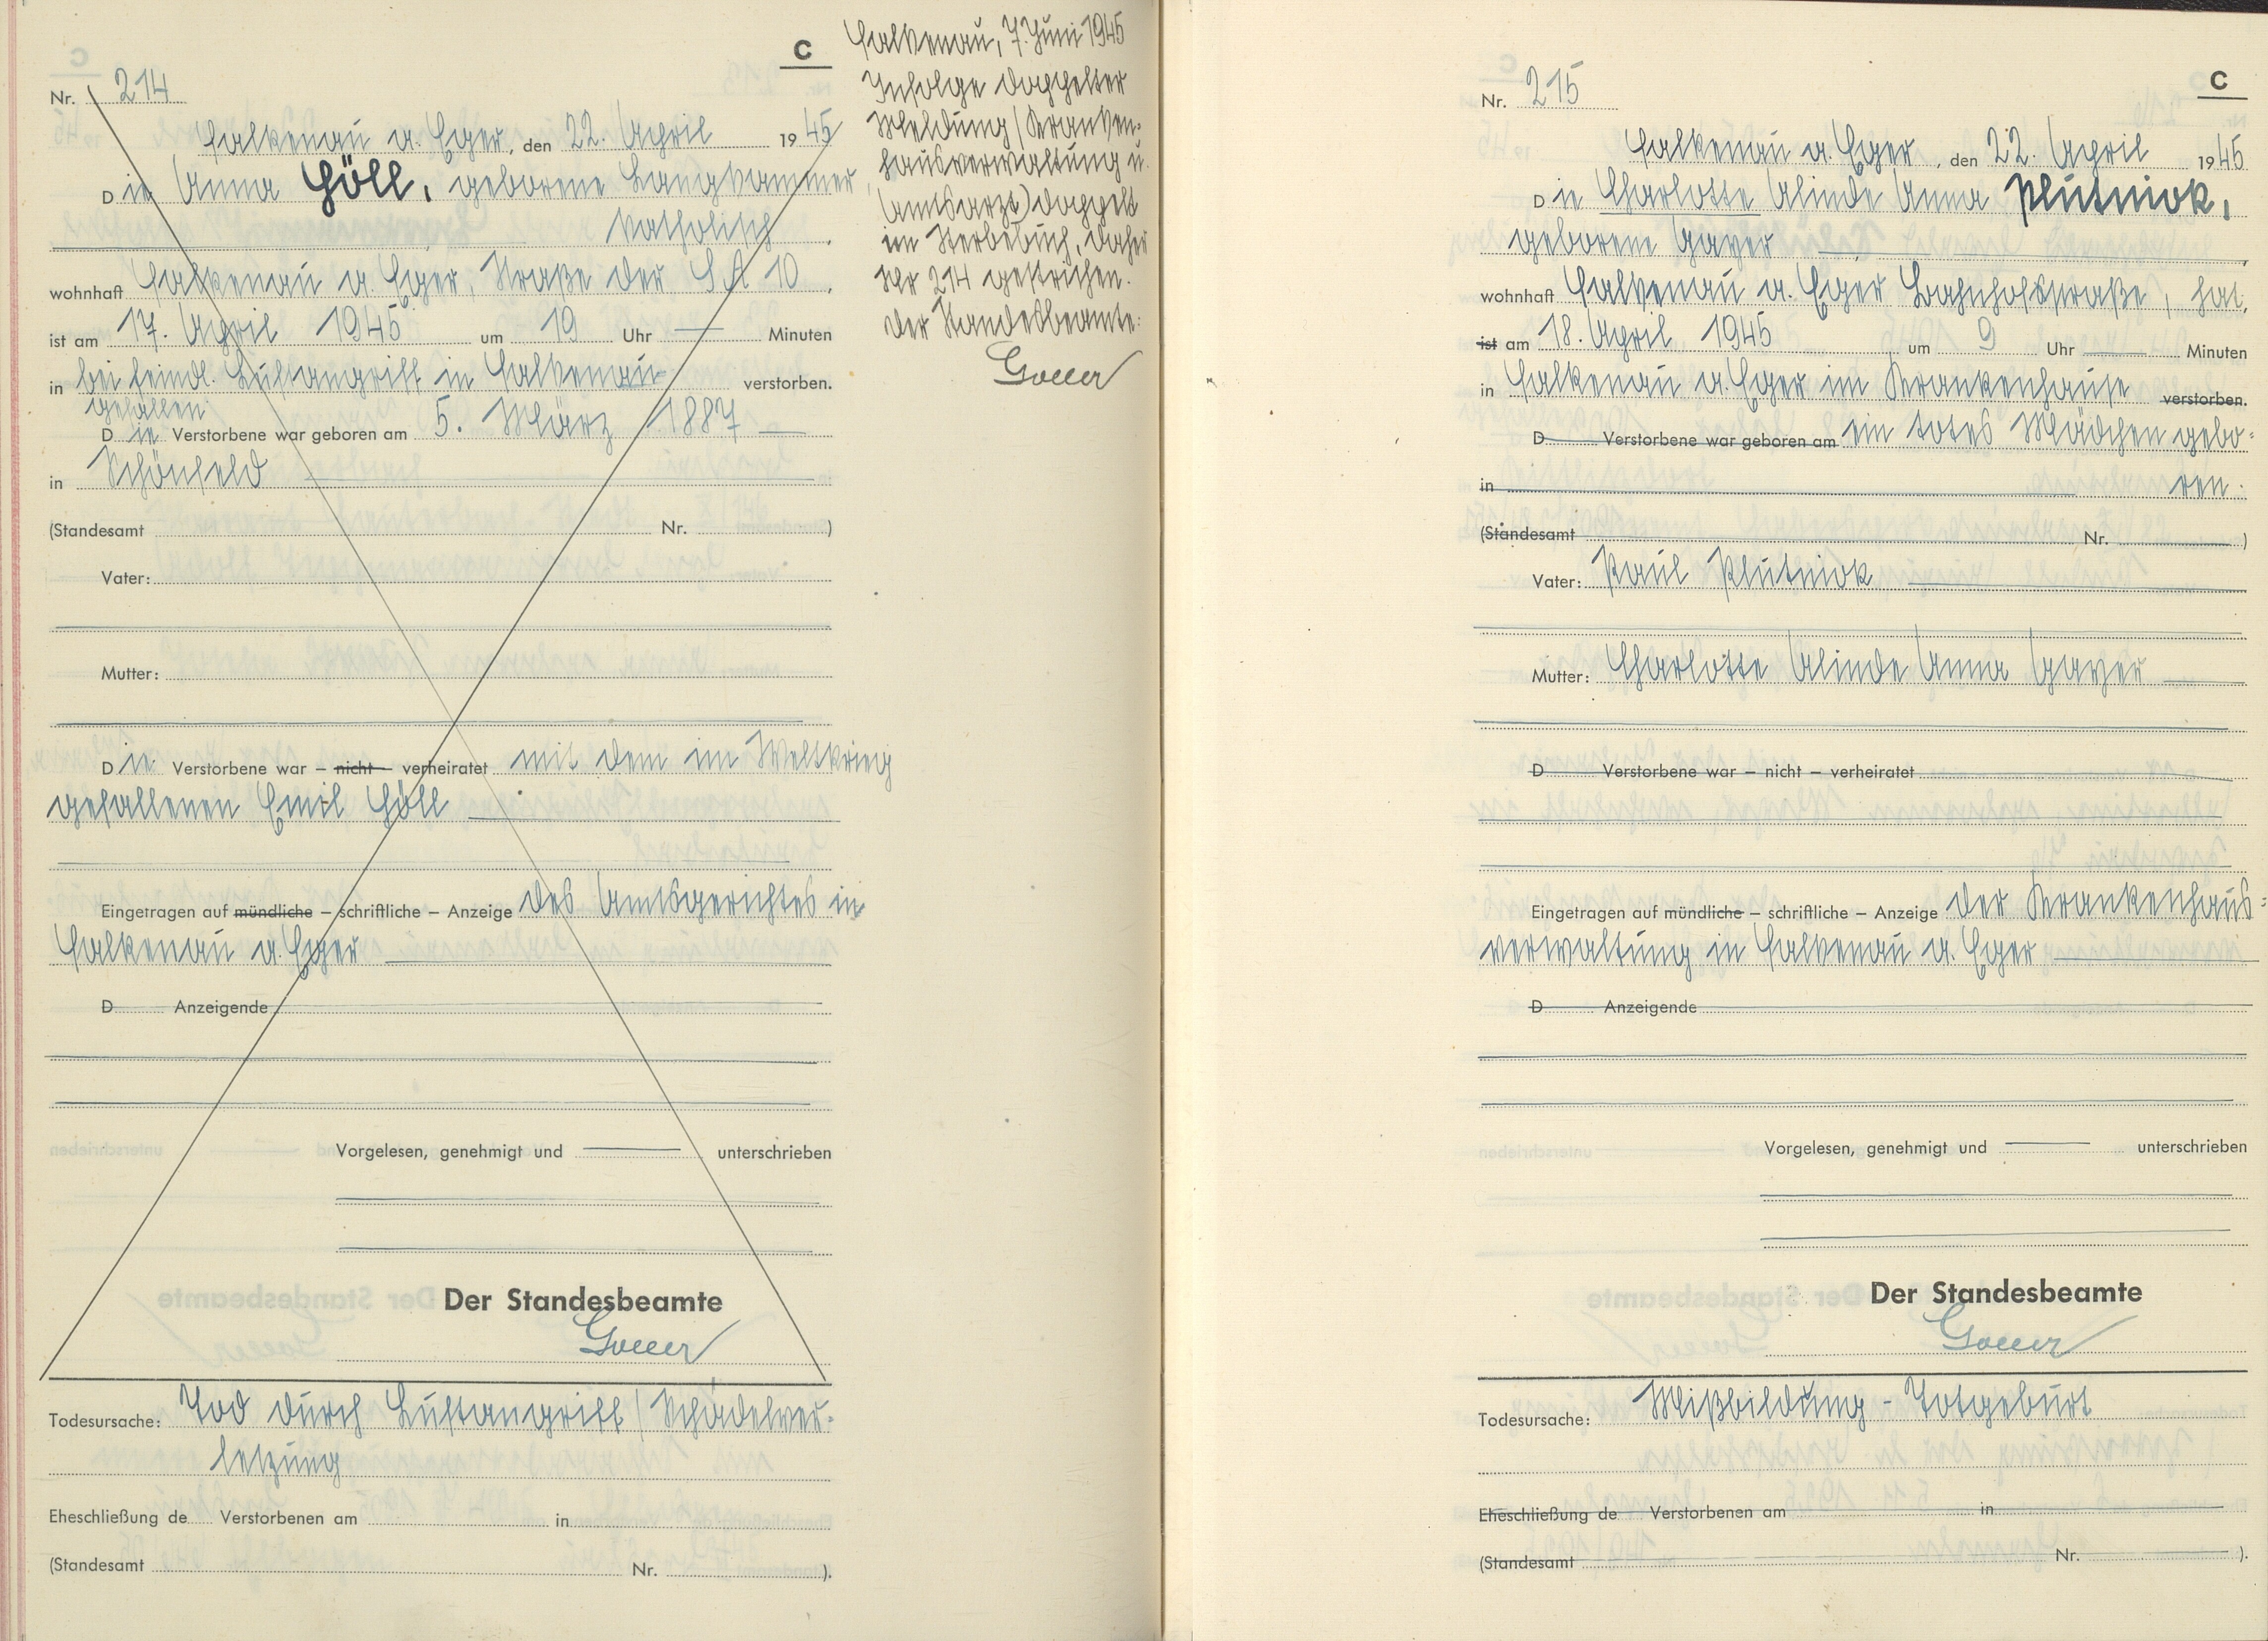 C
Nr. 214
Falkenau a. Eger, den 22. April 1945
Die Anna Höll, geborene Langhammer,
katholisch
wohnhaft Falkenau a. Eger, Straße der SA 10,
ist am 17. April 1945 um 19 Uhr — Minuten
in bei feindl. Luftangriff in Falkenau verstorben.
gefallen
Die Verstorbene war geboren am 5. März 1887 —
in Schönfeld
(Standesamt Nr. )
Vater:
Mutter:
Die Verstorbene war – nicht – verheiratet mit dem im Weltkrieg
gefallenen Emil Höll
Eingetragen auf mündliche – schriftliche – Anzeige des Amtsgerichtes in
Falkenau a. Eger
D Anzeigende
Vorgelesen, genehmigt und — unterschrieben
Der Standesbeamte
Todesursache: Tod durch Luftangriff / Schädelver-
letzung
Eheschließung de Verstorbenen am in
(Standesamt Nr. ).
Falkenau, 7. Juni 1945
Infolge doppelter
Meldung (Kranken-
hausverwaltung u.
Amtsarzt) doppelt
im Sterbebuch, daher
Nr 214 gestrichen.
Der Standesbeamte:
C
Nr. 215
Falkenau a. Eger, den 22. April 1945
Die Charlotte Alinde Anna Plutniok,
geborene Gayer
wohnhaft Falkenau a. Eger Bahnhofstraße, hat,
ist am 18. April 1945 um 9 Uhr — Minuten
in Falkenau a. Eger im Krankenhause verstorben.
D Verstorbene war geboren am ein totes Mädchen gebo-
in ren.
(Standesamt Nr. )
Vater: Paul Plutniok
Mutter: Charlotte Alinde Anna Gayer
D Verstorbene war – nicht – verheiratet
Eingetragen auf mündliche – schriftliche – Anzeige der Krankenhaus-
verwaltung in Falkenau a. Eger
D Anzeigende
Vorgelesen, genehmigt und — unterschrieben
Der Standesbeamte
Todesursache: Mißbildung - Totgeburt
Eheschließung de Verstorbenen am in
(Standesamt Nr. ).